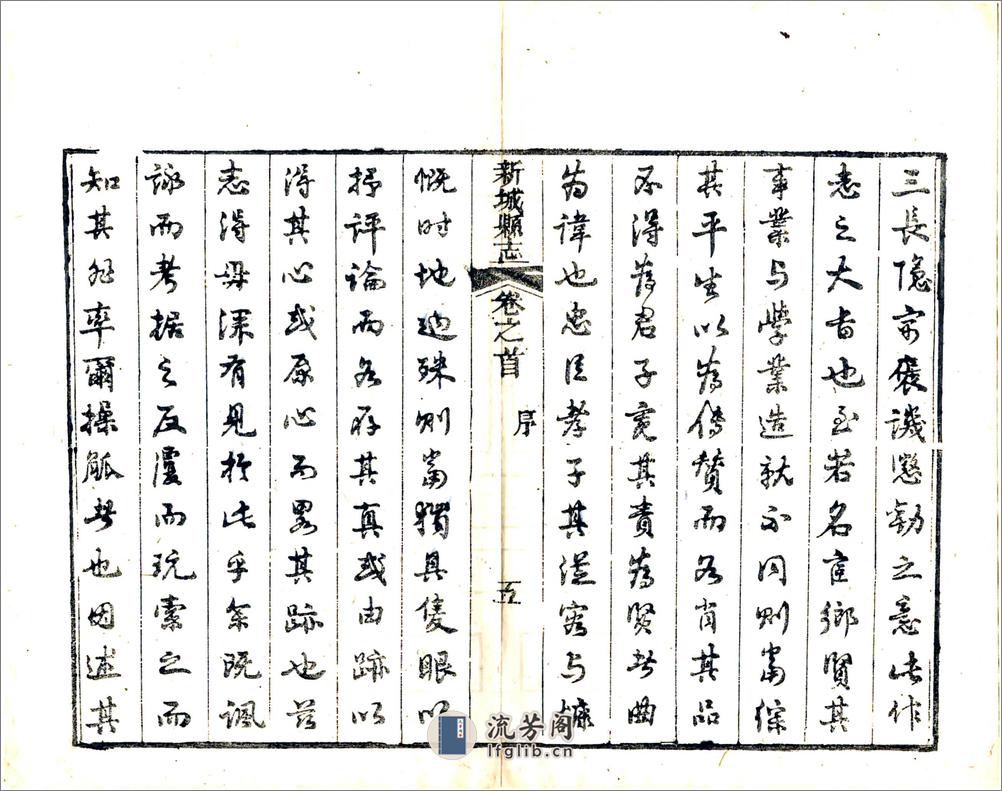 三長隱寓褒譏懲勸之意此作
志之大旨也至若名宦鄉賢其
事業与學業造就不同則當綜
其平生以為傳贊而各肖其品
不得為君子寬其責為賢者曲
為諱也忠臣孝子其從容与慷
新城縣志 卷之首 序 五
慨时地迥殊則當獨具隻眼以
抒評論而各存其真或由跡以
得其心或原心而畧其跡也茲
志得毋深有見於此乎余既諷
詠而考据之反覆而玩索之而
知其非率爾操觚者也因述其
流芳阁
lfglib.cn